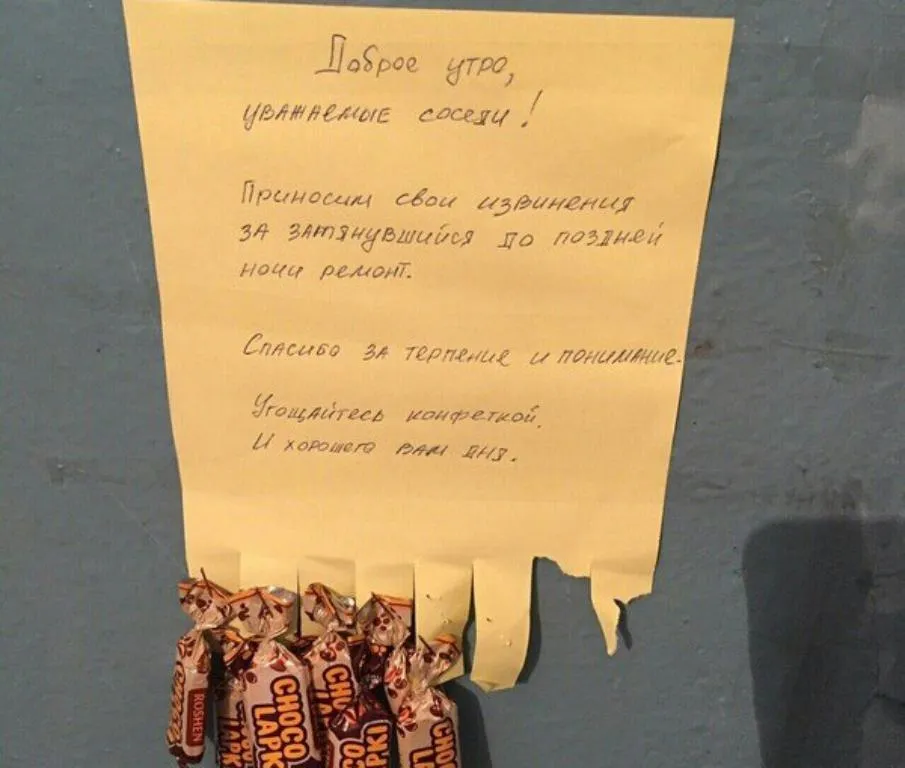 Доброе утро,
уважаемые соседи!
Приносим свои извинения
за затянувшийся до поздней
ночи ремонт.
Спасибо за терпение и понимание.
Угощайтесь конфеткой.
И хорошего вам дня.
ROSHEN
CHOCO
LAPK
CHOCO